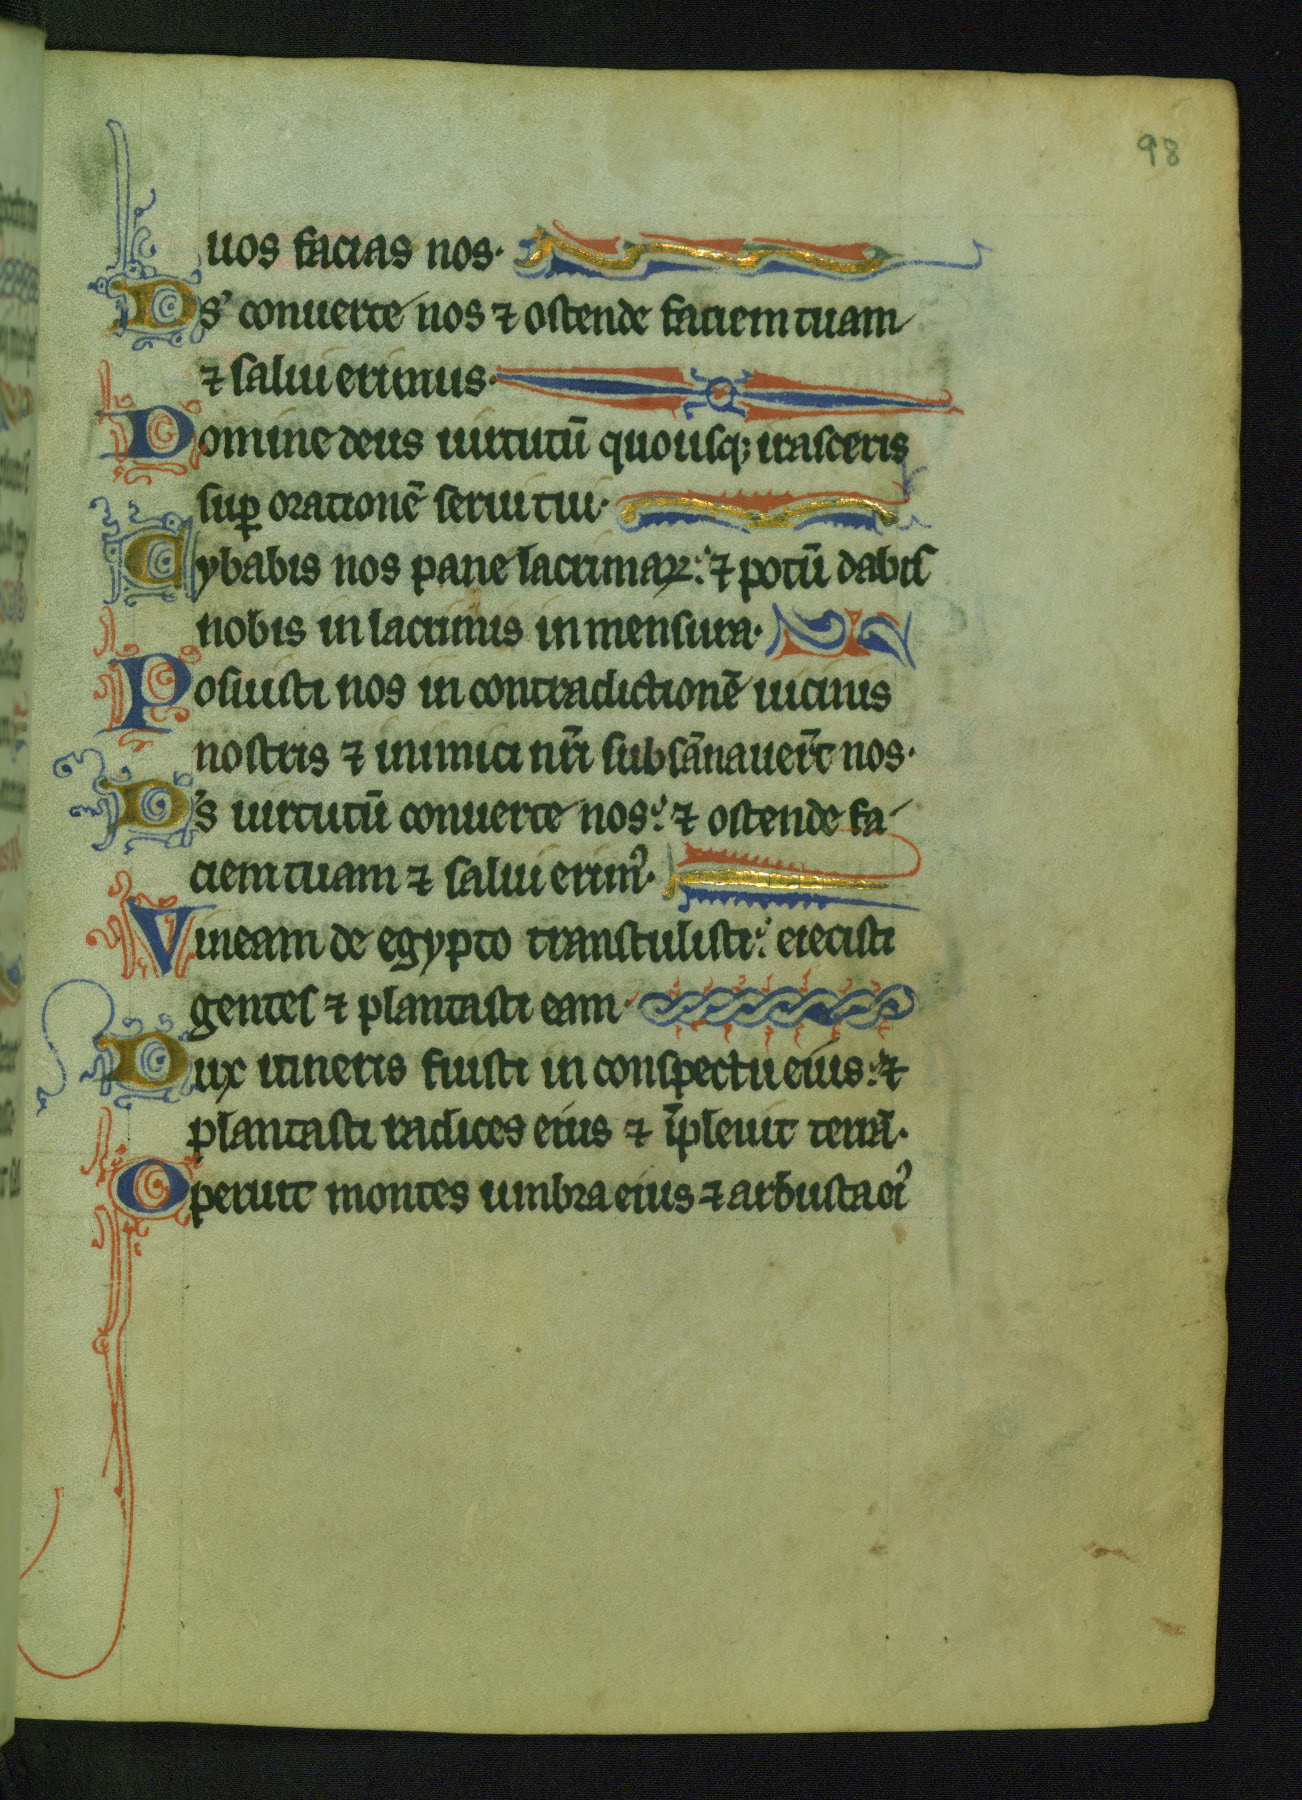 98
uos facias nos·
Ds’ conuerte nos ⁊ ostende faciem tuam
⁊ salui erimus·
Domine deus uirtutū quousq; irasceris
sup̱ orationē serui tui·
Cybabis nos pane lacrimaꝝ: ⁊ potū dabis
nobis in lacrimis in mensura·
Posuisti nos in contradictionē uicinis
nostris ⁊ inimici nr̄i subsānauer̄t nos·
Ds’ uirtutū conuerte nos: ⁊ ostende fa
ciem tuam ⁊ salui erimꝰ·
Vineam de egypto transtulisti: eiecisti
gentes ⁊ plantasti eam·
Dux itineris fuisti in conspectu eius: ⁊
plantasti radices eius ⁊ īpleuit terrā·
Operuit montes umbra eius ⁊ arbusta eiꝰ